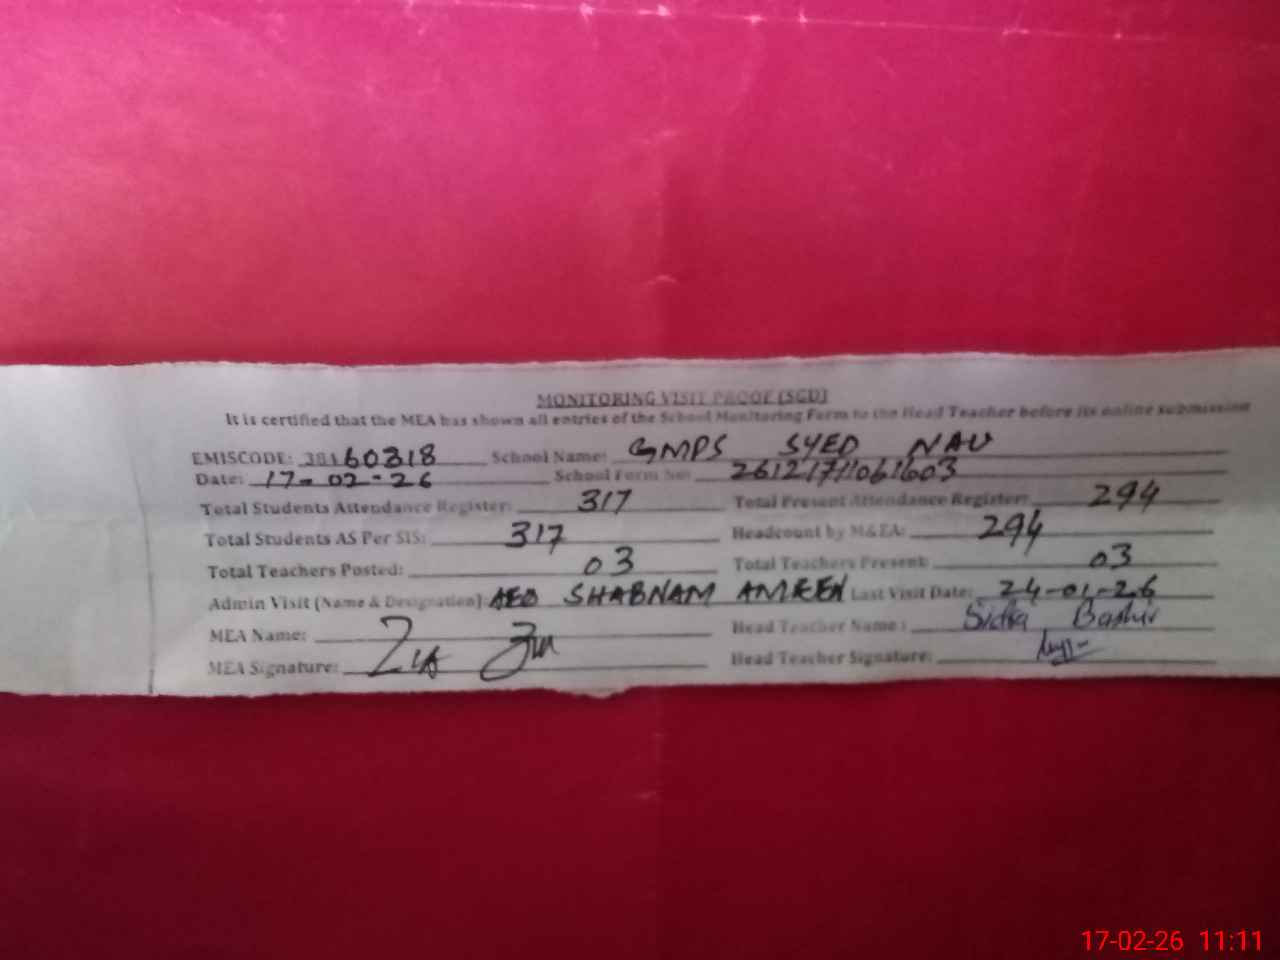 MONITORING VISIT PROOF (SGD)
It is certified that the MEA has shown all entries of the School Monitoring Form to the Head Teacher before its online submission
EMISCODE: 38160318 School Name: GMPS SYED NAU
Date: 17-02-26 School Form No: 2612171061603
Total Students Attendance Register: 317 Total Present Attendance Register: 294
Total Students AS Per SIS: 317 Headcount by M&EA: 294
Total Teachers Posted: 03 Total Teachers Present: 03
Admin Visit (Name & Designation): AEO SHABNAM AMEEN Last Visit Date: 24-01-26
MEA Name: Head Teacher Name: Sidra Bashir
MEA Signature: Zia Head Teacher Signature:
17-02-26 11:11